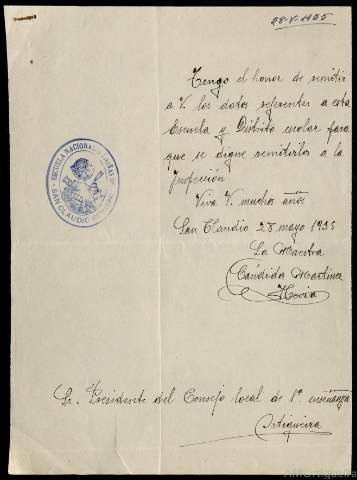 28-V-1935
Tengo el honor de remitir
a V. los datos referentes a esta
Escuela y Distrito escolar para
que se digne remitirlos a la
Inspección.
Viva V. muchos años
San Claudio 28 mayo 1935
La Maestra
Cándida Martínez
Hevia
ESCUELA NACIONAL
SAN CLAUDIO
Sr. Presidente del Consejo local de 1ª enseñanza
Ortigueira